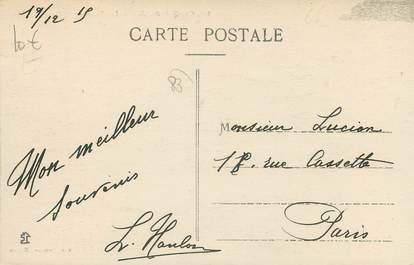 19/12 15
CARTE POSTALE
83
Mon meilleur
souvenir
Monsieur Lucien
18. rue Cassette
Paris